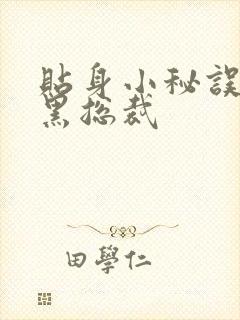 貼身小秘誤
黑總裁
田學仁